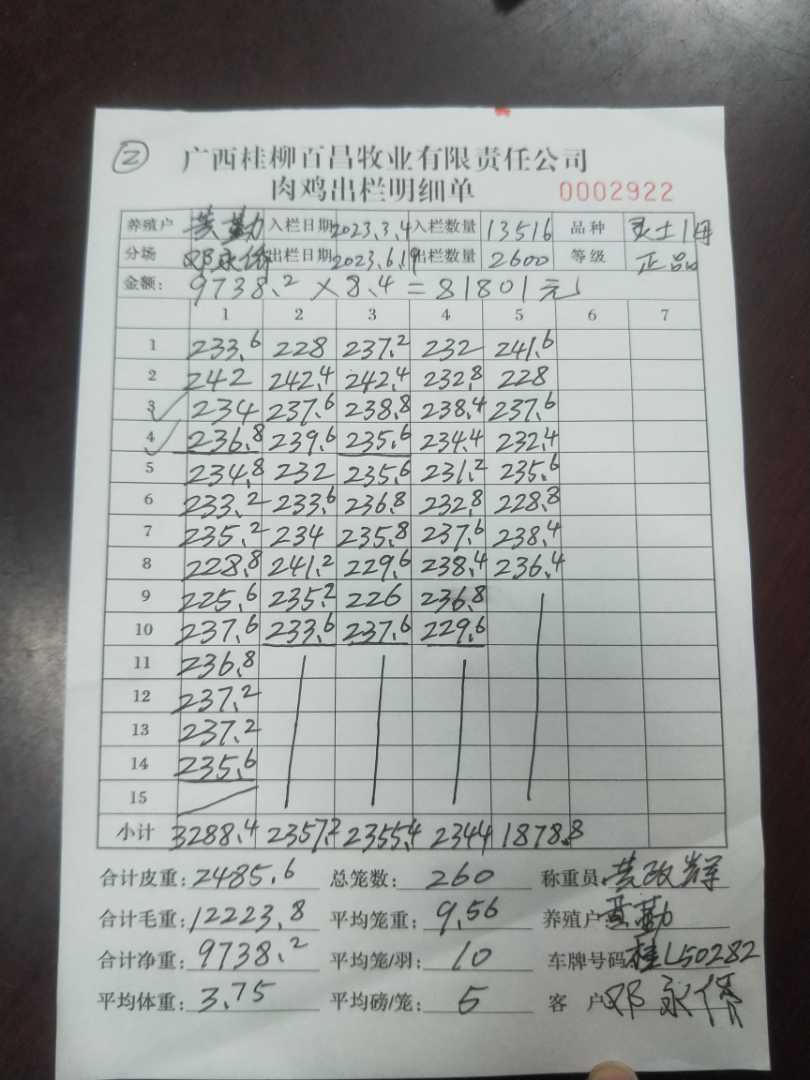 ② 广西桂柳百昌牧业有限责任公司
肉鸡出栏明细单 0002922
养殖户 黄勤 入栏日期 2023.3.4 入栏数量 13516 品种 灵土1母
分场 邓永侨 出栏日期 2023.6.19 出栏数量 2600 等级 正品
金额: 9738.2×8.4=81801元
1 2 3 4 5 6 7
1 233.6 228 237.2 232 241.6
2 242 242.4 242.4 232.8 228
3 234 237.6 238.8 238.4 237.6
4 236.8 239.6 235.6 234.4 232.4
5 234.8 232 235.6 231.2 235.6
6 233.2 233.6 236.8 232.8 228.8
7 235.2 234 235.8 237.6 238.4
8 228.8 241.2 229.6 238.4 236.4
9 225.6 235.2 226 236.8
10 237.6 233.6 237.6 229.6
11 236.8
12 237.2
13 237.2
14 235.6
15
小计 3288.4 2357.2 2355.4 2344 1878.8
合计皮重: 2485.6 总笼数: 260 称重员: 黄政辉
合计毛重: 12223.8 平均笼重: 9.56 养殖户 黄勤
合计净重: 9738.2 平均笼/羽: 10 车牌号码: 桂L50282
平均体重: 3.75 平均磅/笼: 5 客 户 邓永侨